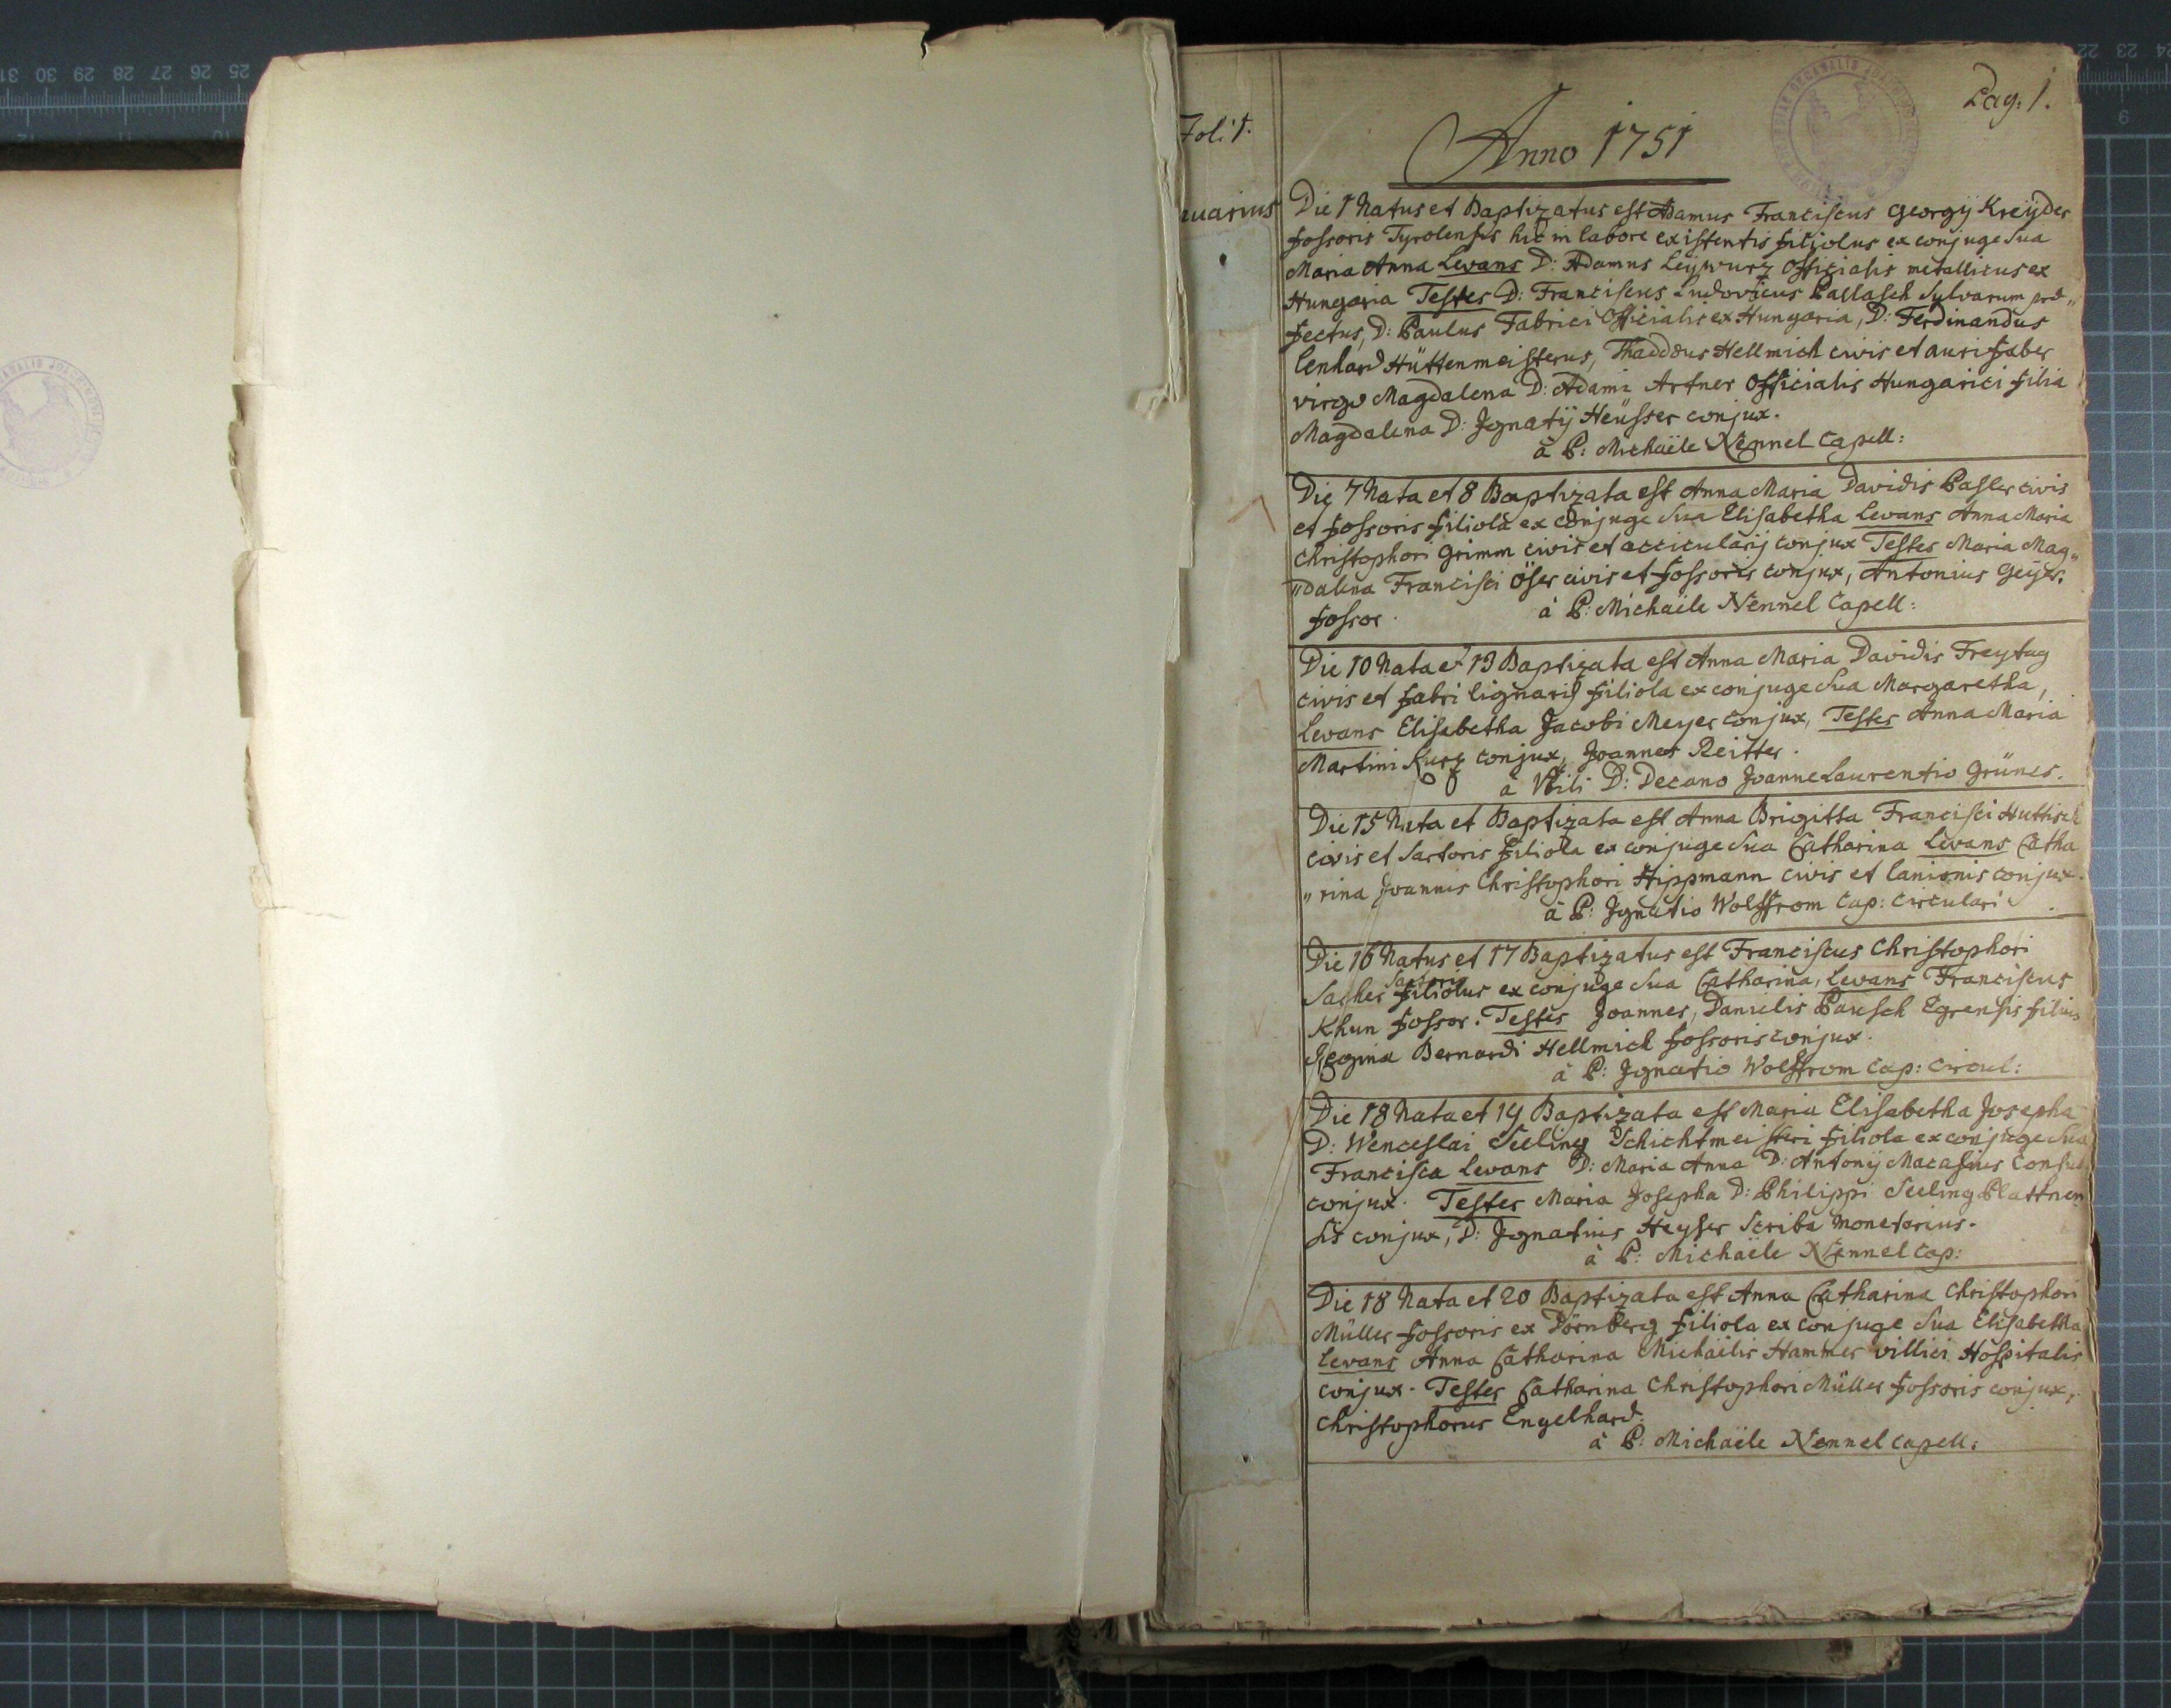 Pag: 1.
Foli 1.
Anno 1751
uarius
Die 1 Natus et Baptizatus est Adamus Franciscus Georgij Kreÿder
fossoris Tyrolensis hic in labore existentis filiolus ex conjuge sua
Maria Anna Levans D: Adamus Leywurz Officialis metallicus ex
Hungaria Testes D: Franciscus Ludovicus Pallasch Sylvarum præ„
fectus, D: Paulus Fabrici Officialis ex Hungaria, D: Ferdinandus
Lenhard Hüttenmeisterus, Thaddæus Hellmich civis et aurifaber
virgo Magdalena D: Adami Artner Officialis Hungarici filia
Magdalena D: Ignatij Heüsser conjux.
à P: Michaële Nennel Capell:
Die 7 Nata et 8 Baptizata est Anna Maria Davidis Pasler civis
et fossoris filiola ex conjuge sua Elisabetha Levans Anna Maria
Christophori Grimm civis et accicularij conjux Testes Maria Mag„
„dalena Francisci Öser civis et fossoris conjux, Antonius Geÿer
fossor. à P: Michaële Nennel Capell:
Die 10 Nata et 13 Baptizata est Anna Maria Davidis Freytag
civis et fabri lignarij filiola ex conjuge sua Margaretha,
Levans Elisabetha Jacobi Meyer conjux, Testes Anna Maria
Martini Kurz conjux, Joannes Reitter.
à D: Decano Joanne Laurentio Grünes.
Die 15 Nata et Baptizata est Anna Brigitta Francisci Huttisch
civis et Sartoris filiola ex conjuge sua Catharina Levans Catha
„rina Joannis Christophori Hippmann civis et lanionis conjux.
à P: Ignatio Wolffrom Cap: Circulari
Die 16 Natus et 17 Baptizatus est Franciscus Christophori
Sacher Sartoris filiolus ex conjuge sua Catharina, Levans Franciscus
Khun fossor. Testes Joannes, Danielis Pausch Egrensis filius
Regina Bernardi Hellmich fossoris conjux.
à P: Ignatio Wolffrom Cap: Circul:
Die 18 Nata et 19 Baptizata est Maria Elisabetha Josepha
D: Wenceslai Seeling Schichtmeisteri filiola ex conjuge sua
Francisca Levans D: Maria Anna D: Antonij Macasius Consul
conjux. Testes Maria Josepha D: Philippi Seeling Plattnen
sis conjux, D: Ignatius Heyser Scriba monetarius.
à P: Michaële Nennel Cap:
Die 18 Nata et 20 Baptizata est Anna Catharina Christophori
Müller fossoris ex Dörnberg filiola ex conjuge sua Elisabetha
Levans Anna Catharina Michaëlis Hammer villici Hospitalis
conjux. Testes Catharina Christophori Müller fossoris conjux,
Christophorus Engelhard.
à P: Michaële Nennel Capell: